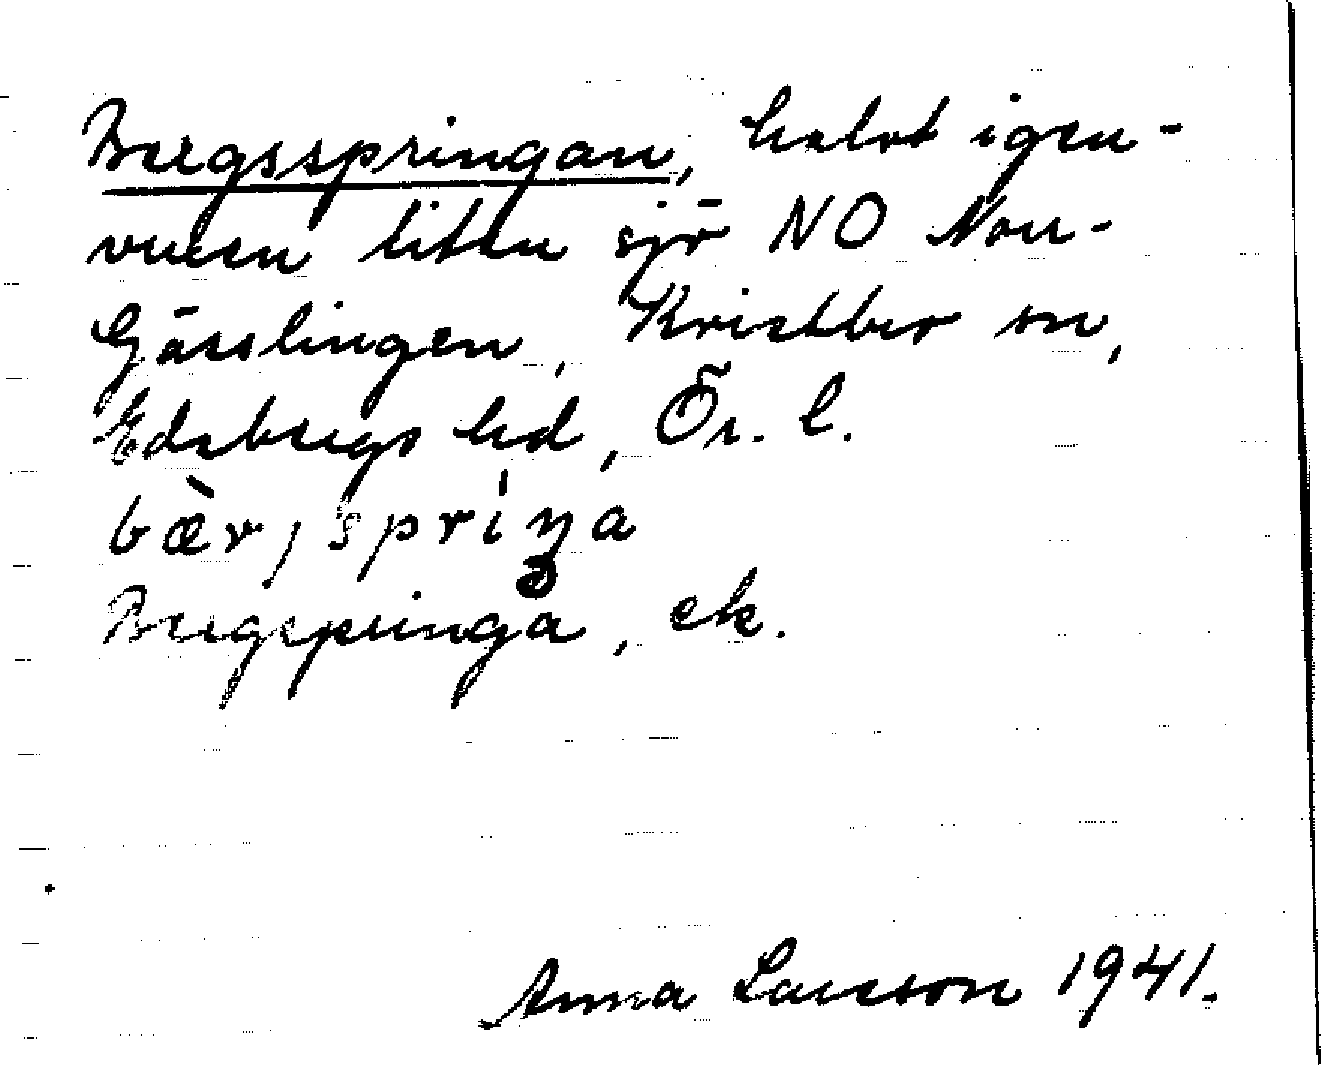 Bergsspringan, halvt igen-
vuxen liten sjö NO Norr-
Gässlingen, Knistbro sn,
Edsbergs hd, Ör. l.
bæ̀rjspriŋa
Bergspringa, ek.
Anna Larsson 1941.